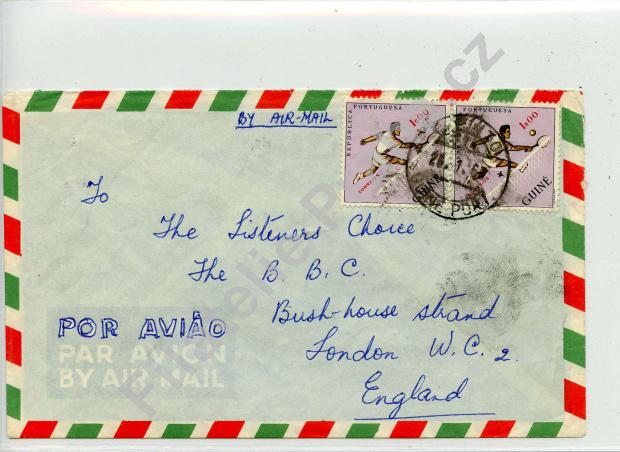 BY AIR-MAIL
REPÚBLICA PORTUGUESA
1$00
CORREIOS
GUINÉ
REPÚBLICA PORTUGUESA
1$00
GUINÉ
To
The Listeners Choice
The B. B. C.
Bush-house strand
London W.C. 2.
England
POR AVIÃO
PAR AVION
BY AIR MAIL